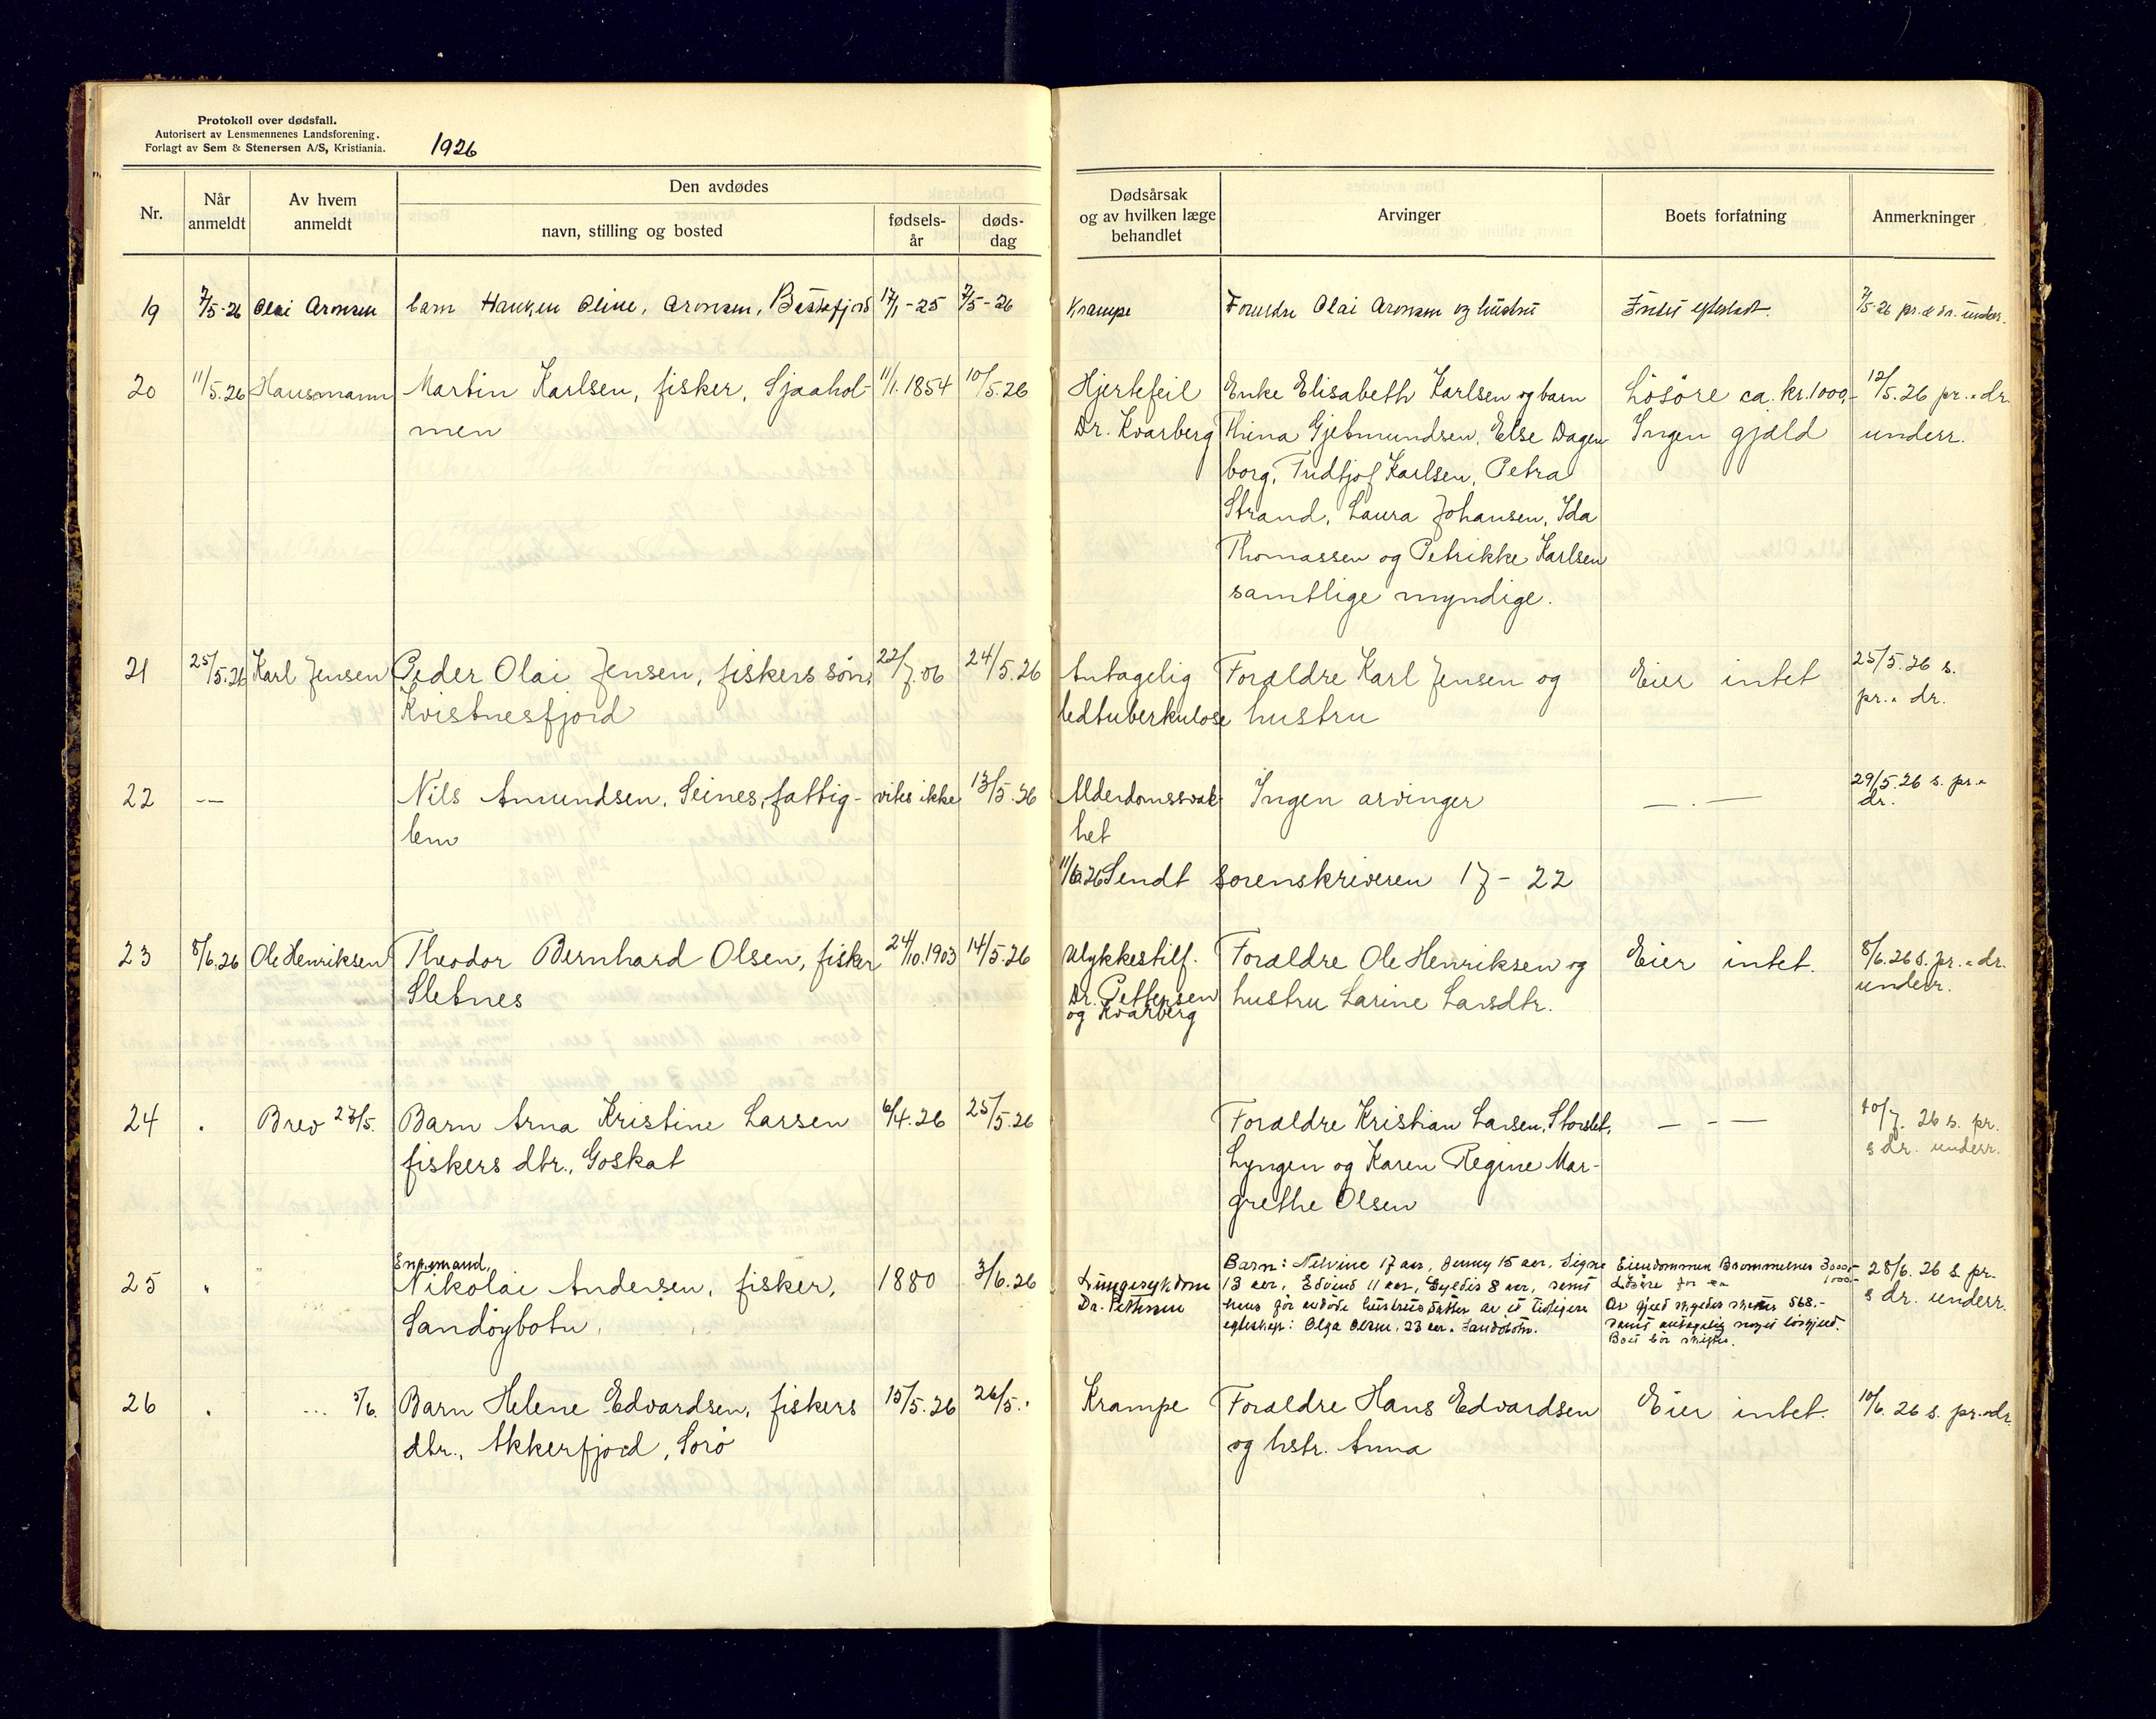 Protokoll over dødsfall.
Autorisert av Lensmennenes Landsforening.
Forlagt av Sem & Stenersen A/S, Kristiania.
1926
Nr.
Når anmeldt
Av hvem anmeldt
Den avdødes
navn, stilling og bosted
fødsels-år
døds-dag
Dødsårsak og av hvilken læge behandlet
Arvinger
Boets forfatning
Anmerkninger
19 7/5-26 Olai Aronsen barn Oline, Aronsen, 17/1-25 7/5-26 Krampe Forældre Olai Aronsen og hustru Intet efterladt. 7/5-26 pr. & dr. underr.
20 11/5.26 Hausmann Martin Karlsen, fisker, Sjaahol- 11/1.1854 10/5.26 Hjertefeil Enke Elisabeth Karlsen og barn Løsøre ca. kr. 1000,- 12/5.26 pr. " dr.
men Dr. Kvarberg Thina Gjetmundsen, Else Dagen Ingen gjæld underr.
borg, Fridtjof Karlsen, Petra
Strand, Laura Johansen, Ida
Thomassen og Petrikke Karlsen
samtlige myndige.
21 25/5.26 Karl Jensen Peder Olai Jensen, fiskers søn, 22/7.06 24/5.26 Antagelig Forældre Karl Jensen og Eier intet 25/5.26 s.
Kvistnesfjord ledtuberkulose hustru pr. " dr.
22 -- Nils Amundsen, Seines, fattig- vites ikke 13/5.26 Alderdomssvak Ingen arvinger — . — 29/5.26 s. pr. "
lem het dr.
11/6.26 Sendt sorenskriveren 17 - 22
23 8/6.26 Ole Henriksen Theodor Bernhard Olsen, fisker 24/10.1903 14/5.26 Ulykkestilf. Forældre Ole Henriksen og Eier intet. 8/6.26 s. pr. " dr.
Sletnes Dr. Pettersen hustru Larine Larsdtr. underr.
og Kvarberg
24 " Brev 27/5. Barn Arna Kristine Larsen 6/4.26 25/5.26 Forældre Kristian Larsen, Storslet, — - — 10/7. 26 s. pr.
fiskers dtr., Goskat Lyngen og Karen Regine Mar- s dr. underr.
grethe Olsen
Enkemand,
25 " " Nikolai Andersen, fisker, 1880 3/6.26 Lungesykdom Barn: Nelvine 17 aar, Jenny 15 aar, Signe Eiendommen 3000,- 28/6. 26 s. pr.
Sandøybotn. Dr. Pettersen 13 aar, Edvind 11 aar, 8 aar, samt Løsøre for ca 1000,- s dr. underr.
hans før avdøde hustrus datter av et tidligere Av gjæld 568.-
egteskap: Olga Olsen, 23 aar, Sandøbotn. samt antagelig noget løsgjæld.
Boet bør skiftes.
26 " ... 5/6. Barn Helene Edvardsen, fiskers 15/5.26 26/5." Krampe Forældre Hans Edvardsen Eier intet. 10/6. 26 s. pr. " dr.
dtr., Akkerfjord, Sørø og hstr. Anna